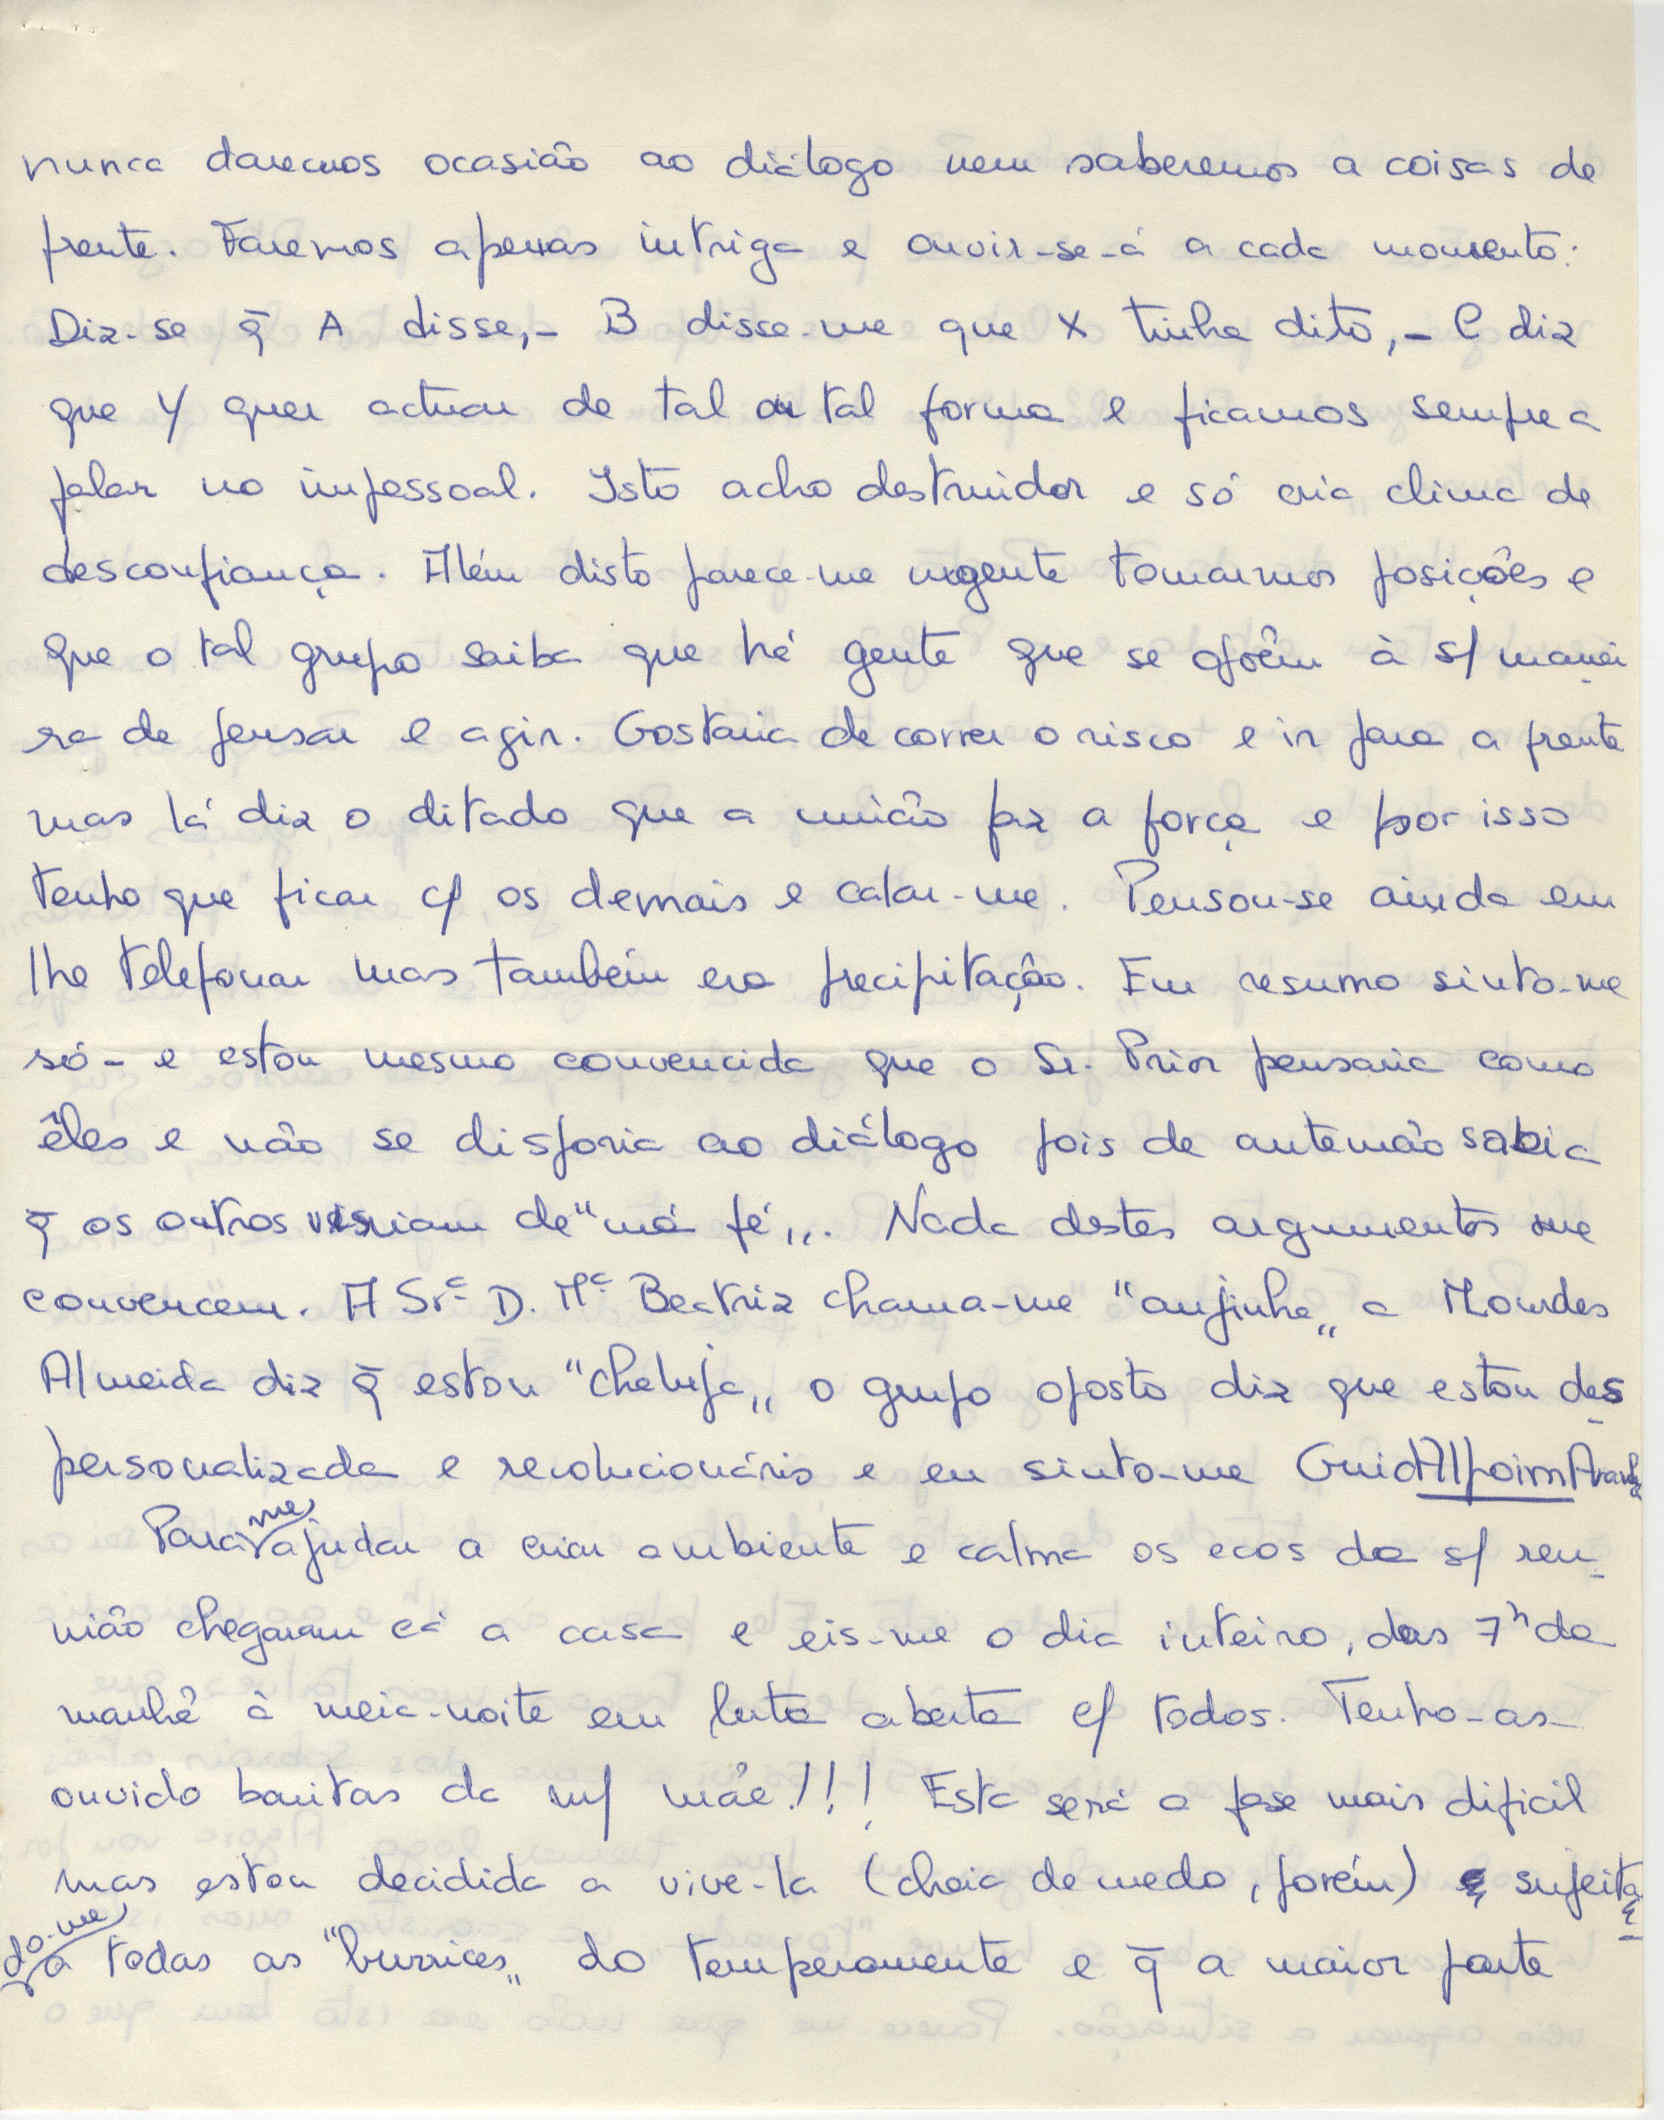 nunca daremos ocasião ao diálogo nem saberemos a coisas de
frente. Faremos apenas intriga e ouvir-se-á a cada momento:
Diz-se q̄ A disse,- B disse-me que X tinha dito,- C diz
que Y quer actuar de tal ou tal forma e ficamos sempre a
falar no impessoal. Isto acho destruidor e só cria clima de
desconfiança. Além disto parece-me urgente tomarmos posições e
que o tal grupo saiba que há gente que se opõem à s/ manei
ra de pensar e agir. Gostaria de correr o risco e ir para a frente
mas lá diz o ditado que a união faz a força e por isso
tenho que ficar c/ os demais e calar-me. Pensou-se ainda em
lhe telefonar mas também era precipitação. Em resumo sinto-me
só - e estou mesmo convencida que o Sr. Prior pensaria como
êles e não se disporia ao diálogo pois de antemão sabia
q̄ os outros viriam de "má fé„. Nada destes argumentos me
convencem. A Srª D. Mª Beatriz chama-me "anjinho„ a Mourdes
Almeida diz q̄ estou "cheluja„ o grupo oposto diz que estou des
personalizada e revolucionária e eu sinto-me Guida Alpoim Aranha
Para me ajudar a criar ambiente e calma os ecos da s/ reu-
nião chegaram cá a casa e eis-me o dia inteiro, das 7h da
manhã à meia-noite em luta aberta c/ todos. Tenho-as-
ouvido bonitas da m/ mãe!!! Esta será a fase mais dificil
mas estou decidida a vive-la (cheia de medo, porém) e sujeita
do-me a todas as "burrices„ do temperamento e q̄ a maior parte